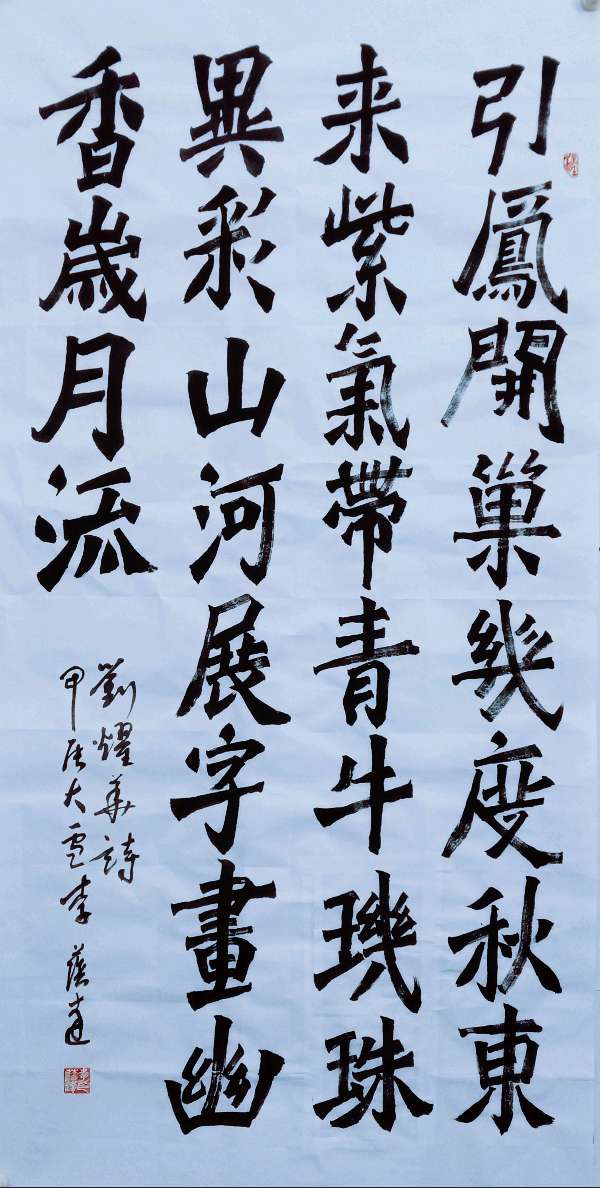 引鳳開巢幾度秋東
来紫氣帶青牛璣珠
異彩山河展字畫幽
香歲月流
劉耀華詩
甲辰大雪李